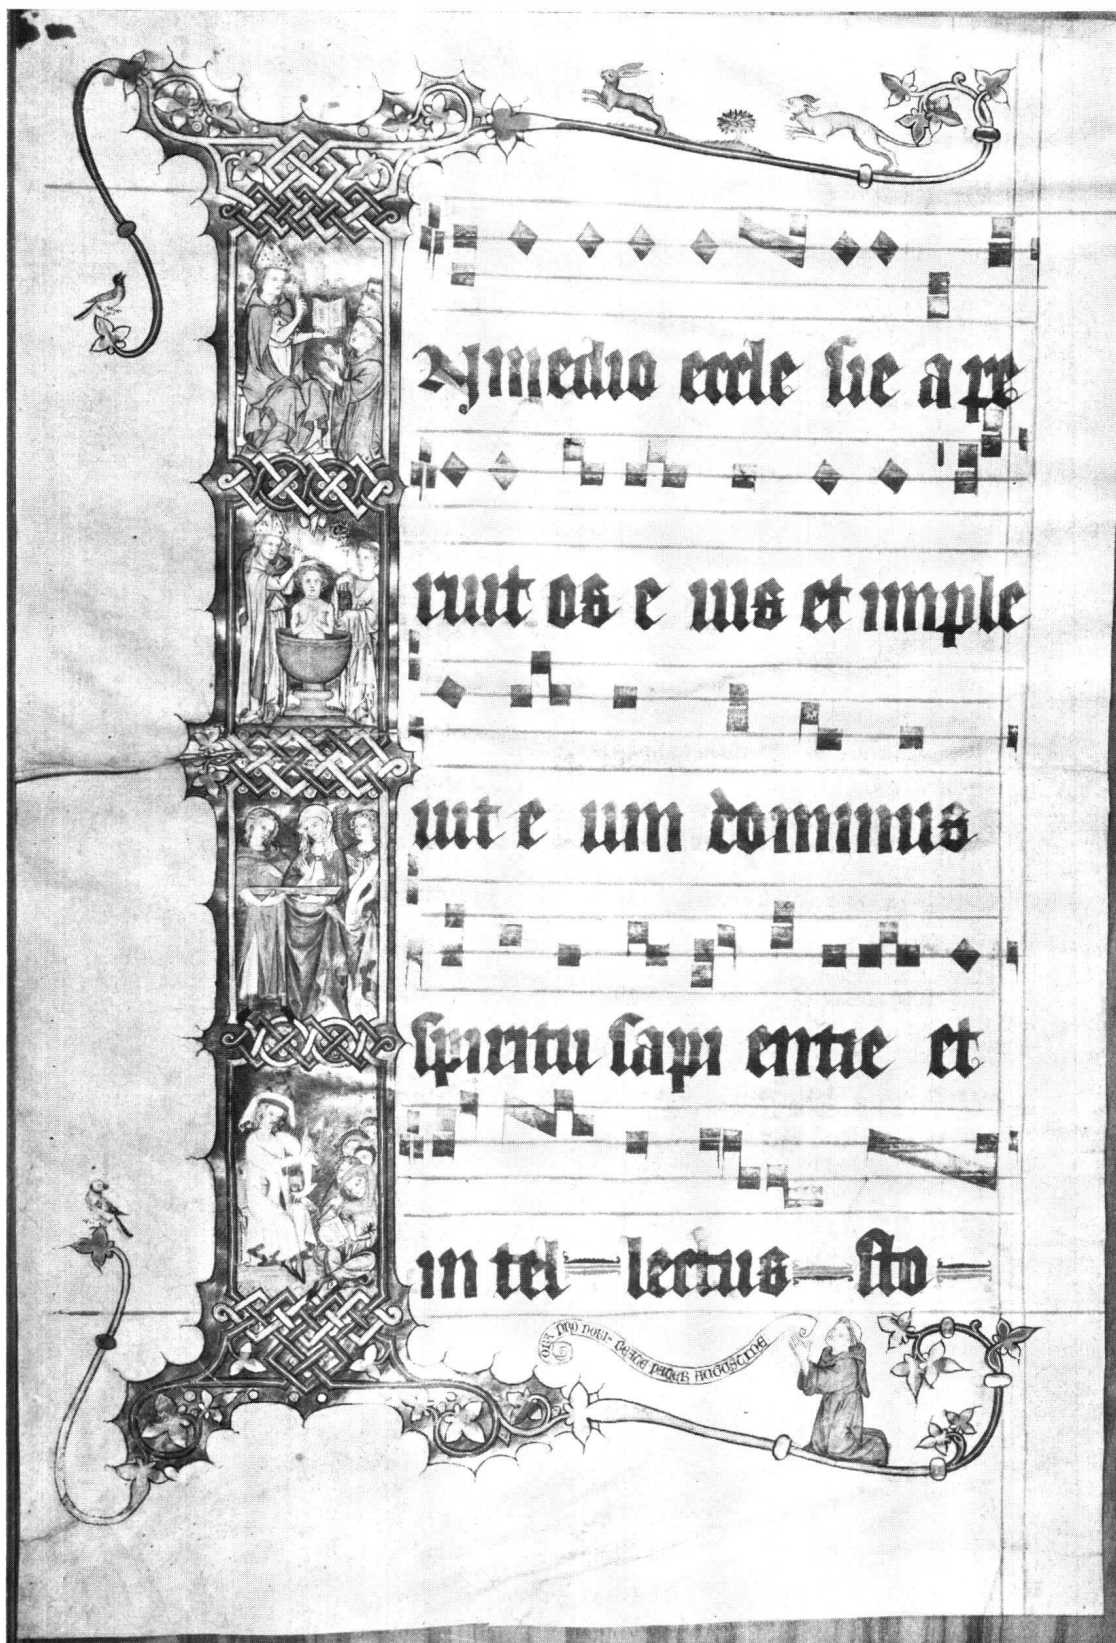 Nmedio eccle sie a pe
ruit os e ius etimple
uit e um dominus
spiritu sapi entie et
in tel lectus sto
ora pro nobis beate pater augustine